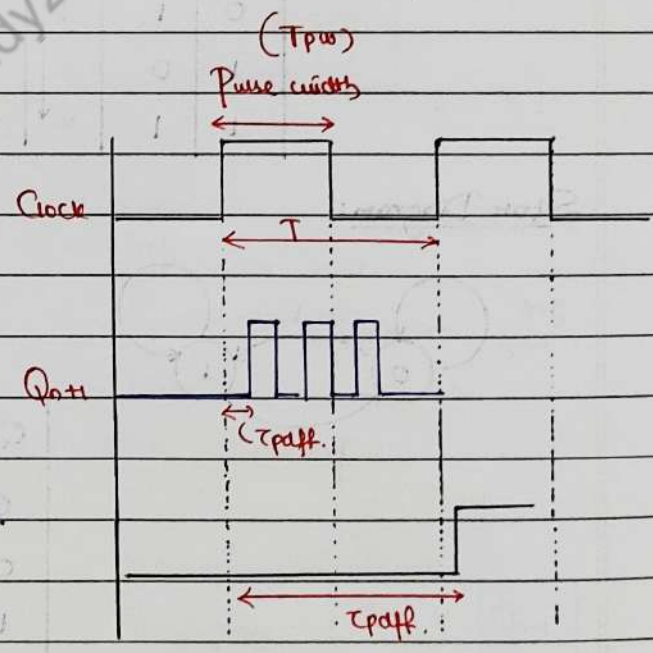 (Tpw)
Pulse width
Clock
T
Qn+1
τpdff.
τpdff.